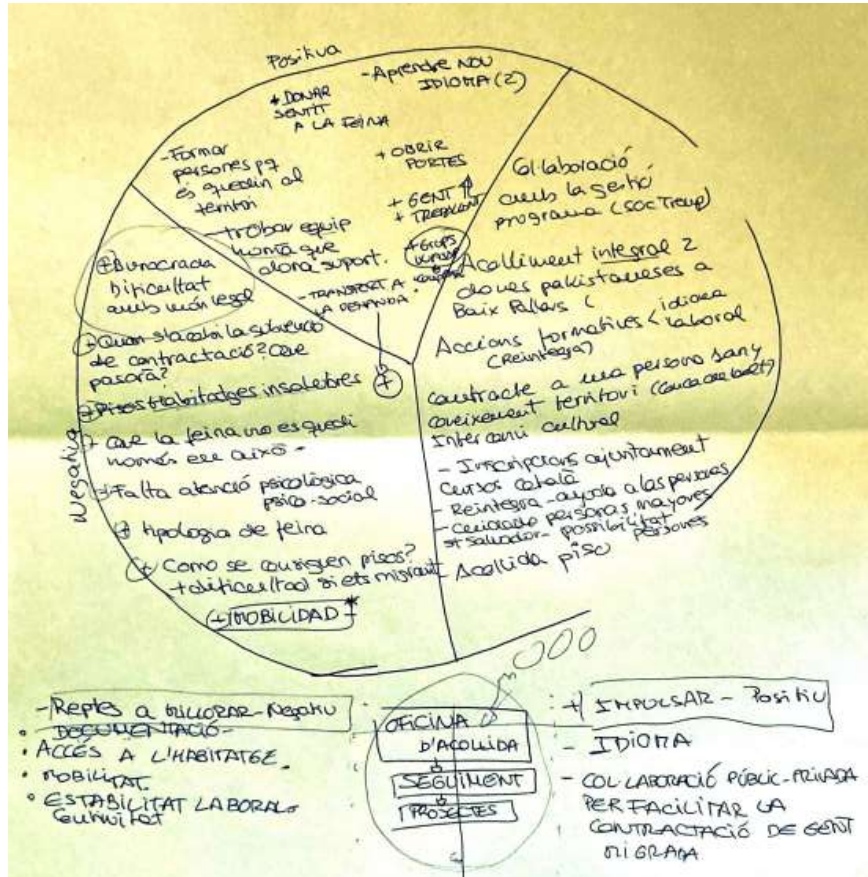 Positiva
- Aprendre NOU
IDIOMA (2)
+ DONAR
SENTIT
A LA FEINA
- Formar
persones pq
es quedin al
territori
+ OBRIR
PORTES
+ GENT
+ TREBALLANT
- trobar equip
humà que
dona suport.
+ GRUPS
- TRANSPORT A
LA DEMANDA.
Col·laboració
amb la gestió
programa (SOC Tremp)
Acolliment integral 2
dones pakistaneses a
Baix Pallars (
Accions formatives < idioma
laboral
(Reintegra)
Contracte a una persona
coneixement territori
Intercanvi cultural
- Inscripcions ajuntament
Cursos català
- Reintegra - ayuda a las personas
- Cuidado personas mayores
St Salvador - possibilitat
persones
- Acollida piso
Negativa
+ Burocràcia
Dificultat
amb món legal
+ Quan s'acabi la subvenció
de contractació? Que
pasarà?
+ Pisos + habitatges insalubres
+
+ Que la feina no es quedi
només en això -
+ Falta atenció psicològica
psico-social
+ tipologia de feina
+ Como se consiguen pisos?
+ dificultad si ets migrant
+ MOBILIDAD *
- Reptes a MILLORAR - Negatiu
• DOCUMENTACIÓ -
• ACCÉS A L'HABITATGE.
• MOBILITAT.
• ESTABILITAT LABORAL.
OFICINA
D'ACOLLIDA
SEGUIMENT
PROJECTES
+ IMPULSAR - Positiu
- IDIOMA
- COL·LABORACIÓ PÚBLIC-PRIVADA
PER FACILITAR LA
CONTRACTACIÓ DE GENT
MIGRADA